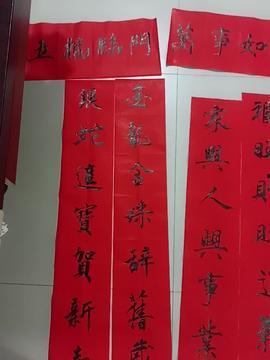 五福臨門
萬事如
福旺財旺運
家興人興事業
玉龍含珠辭舊歲
銀蛇進寶賀新春